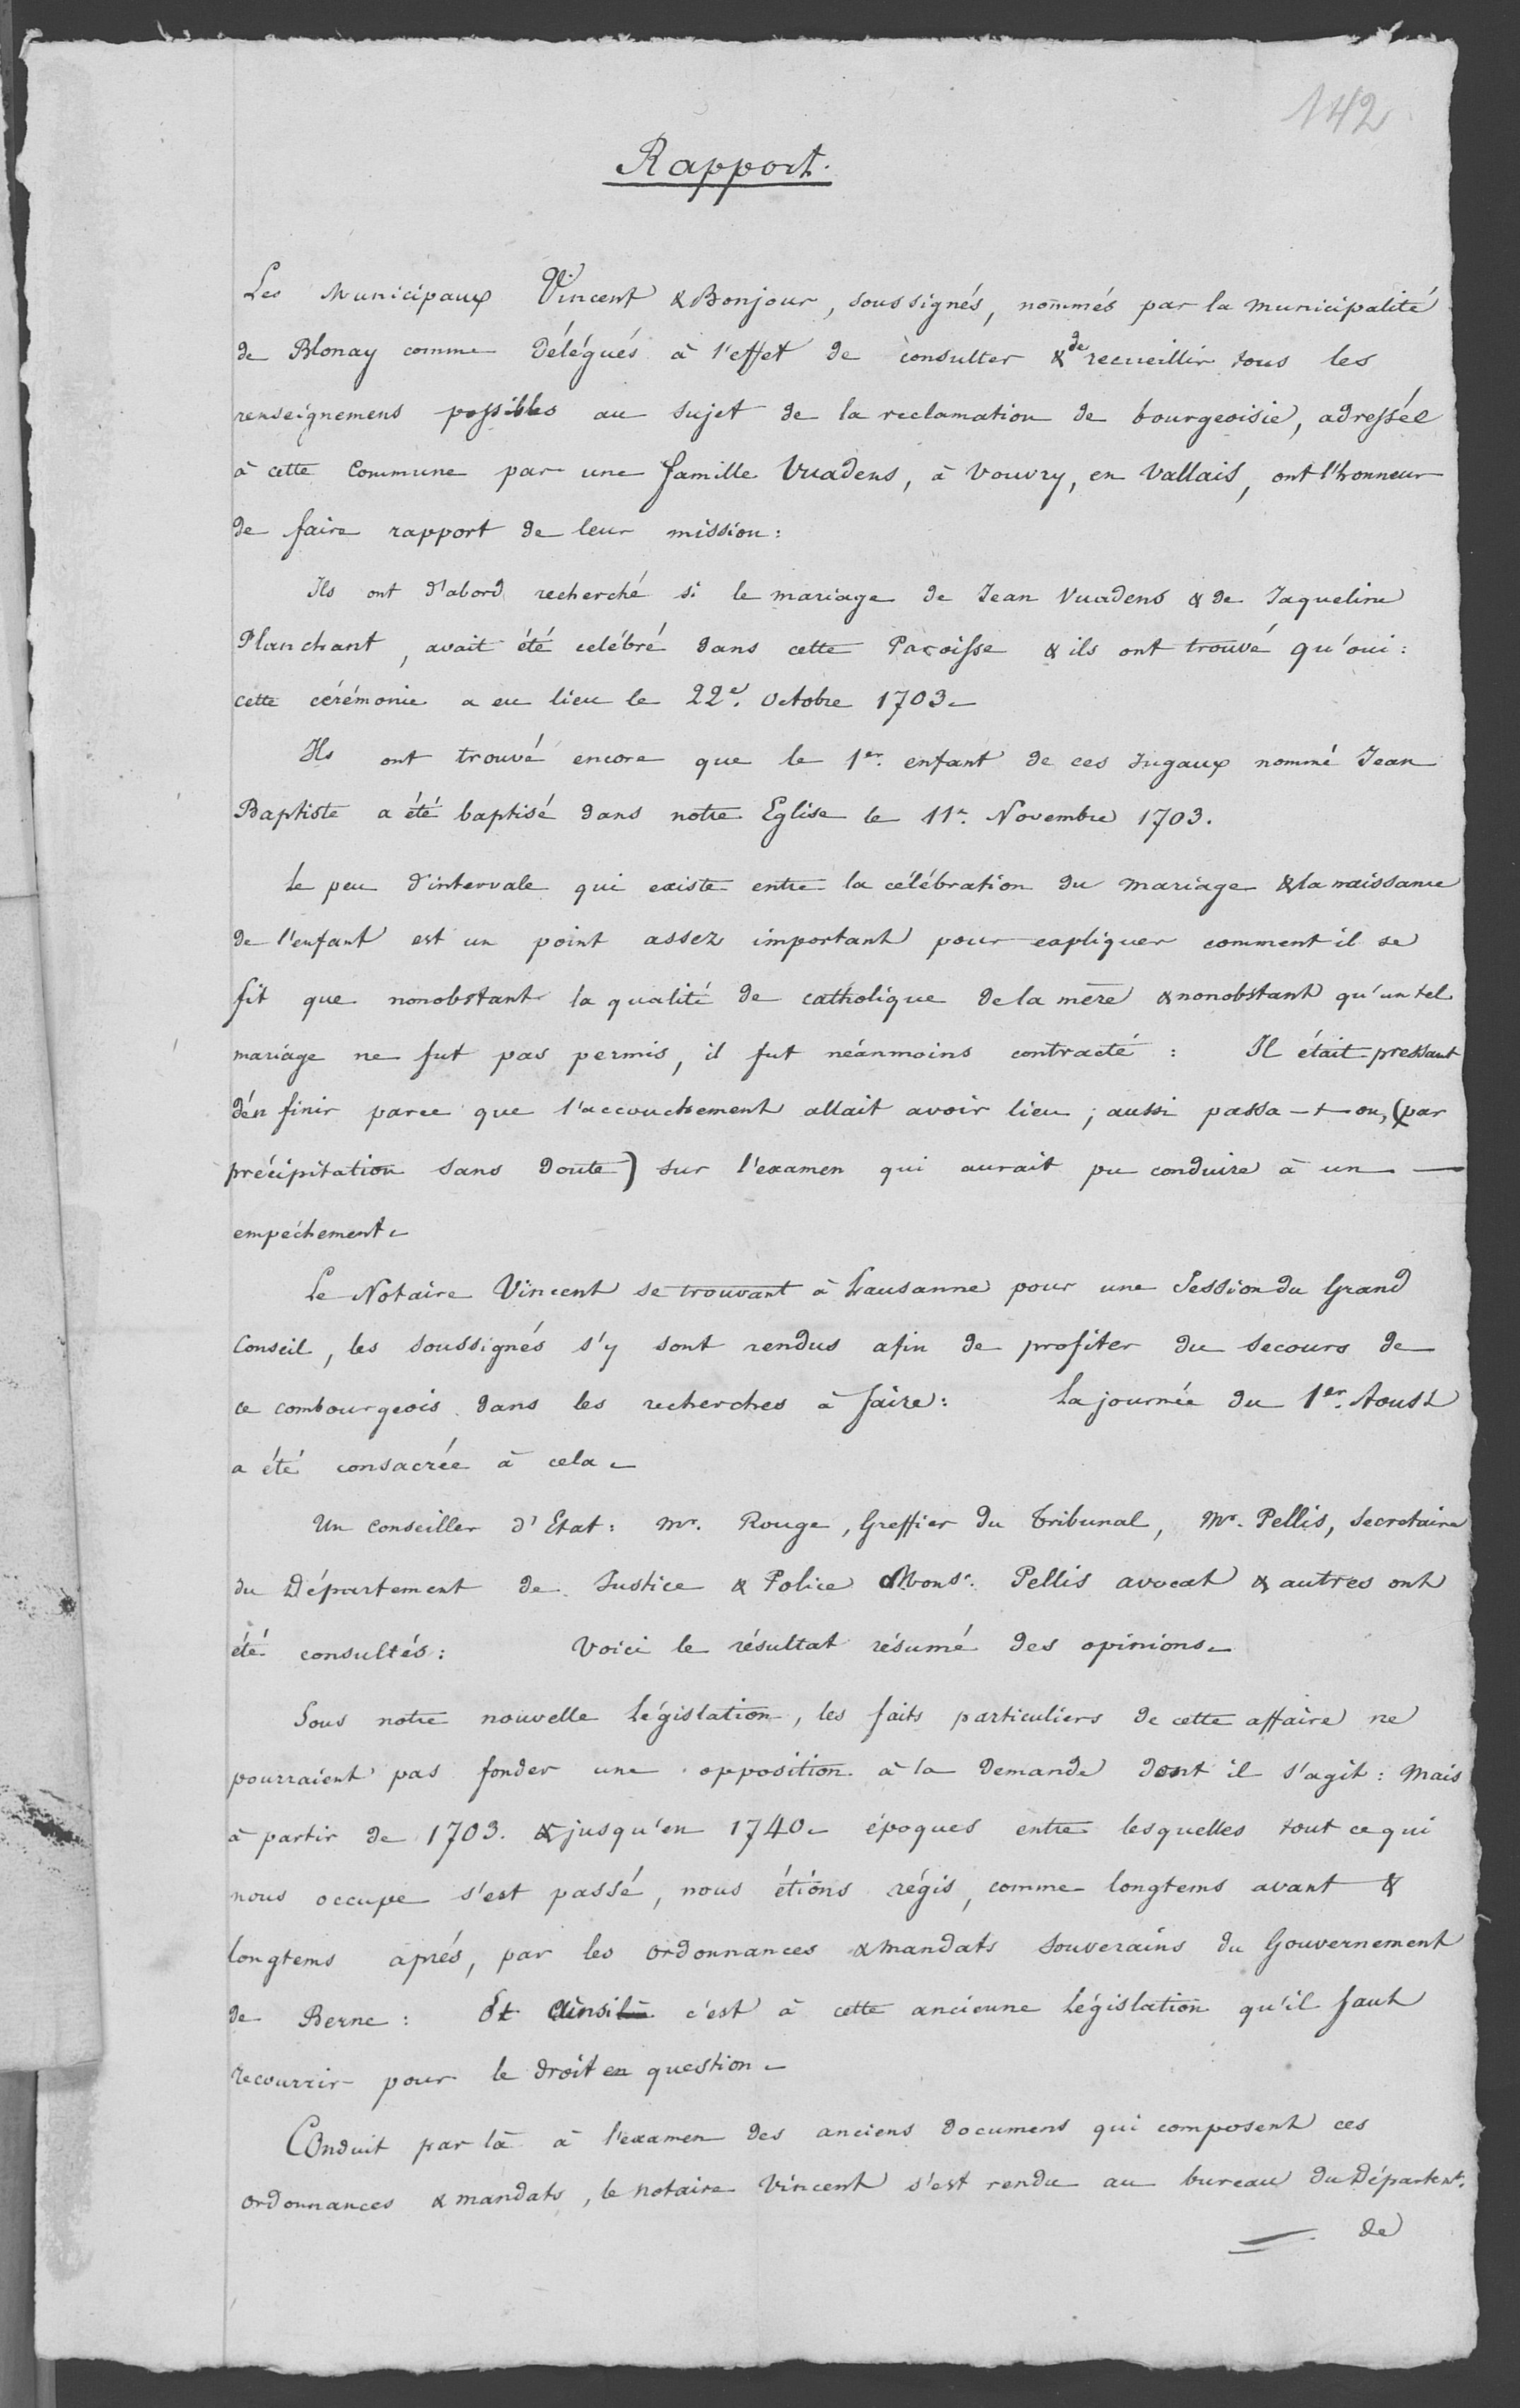 142
Rapport.
Les Municipaux Vincent & Bonjour, soussignés, nommés par la municipalité
de Blonay comme délégués à l'effet de consulter & de recueillir tous les
renseignemens possibles au sujet de la reclamation de bourgeoisie, adressée
à cette Commune par une famille Vuadens, à Vouvry, en Vallais, ont l'honneur
de faire rapport de leur mission :
Ils ont d'abord recherché si le mariage de Jean Vuadens & de Jaqueline
Planchant, avait été celébré dans cette Paroisse & ils ont trouvé qu'oui :
cette cérémonie a eu lieu le 22e. Octobre 1703.
Ils ont trouvé encore que le 1er. enfant de ces Jugaux nommé Jean
Baptiste a été baptisé dans notre Eglise le 11e. Novembre 1703.
Le peu d'intervale qui existe entre la célébration du mariage & la naissance
de l'enfant est un point assez important pour expliquer comment il se
fit que nonobstant la qualité de catholique de la mère & nonobstant qu'un tel
mariage ne fut pas permis, il fut néanmoins contracté : Il était pressant
d'en finir parce que l'accouchement allait avoir lieu ; aussi passa-t-on, (par
précipitation sans doute) sur l'examen qui aurait pu conduire à un —
empêchement.
Le Notaire Vincent se trouvant à Lausanne pour une Session du Grand
Conseil, les soussignés s'y sont rendus afin de profiter du secours de
ce combourgeois dans les recherches à faire : La journée du 1er. Aoust
a été consacrée à cela.
Un conseiller d'Etat : Mr. Rouge, Greffier du Tribunal, Mr. Pellis, secretaire
du Département de Justice & Police Monsr. Pellis avocat & autres ont
été consultés : Voici le résultat résumé des opinions.
Sous notre nouvelle Législation, les faits particuliers de cette affaire ne
pourraient pas fonder une opposition à la demande dont il s'agit : Mais
à partir de 1703. & jusqu'en 1740. époques entre lesquelles tout ce qui
nous occupe s'est passé, nous étions régis, comme longtems avant &
longtems après, par les ordonnances & mandats souverains du Gouvernement
de Berne : Et Ainsi c'est à cette ancienne Législation qu'il faut
recourrir pour le droit en question.
Conduit par là à l'examen des anciens documens qui composent ces
ordonnances & mandats, le notaire Vincent s'est rendu au bureau du Départent.
de